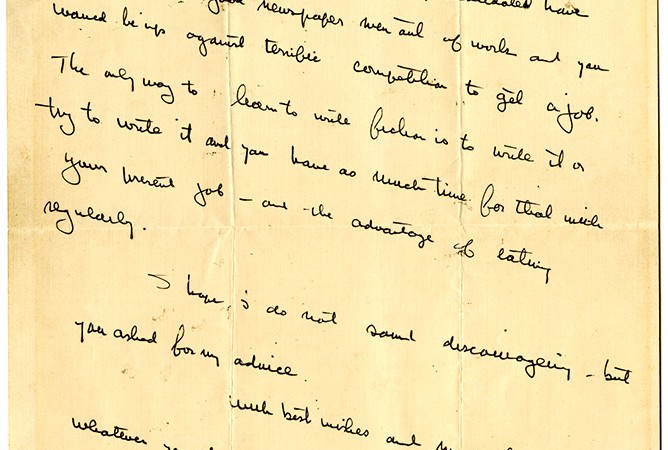 have
good newspaper men out of work and you
would be up against terrific competition to get a job.
The only way to learn to write fiction is to write it or
try to write it and you have as much time for that with
your present job – and the advantage of eating
regularly.
I hope I do not sound discouraging – but
you asked for my advice.
with best wishes and
whatever